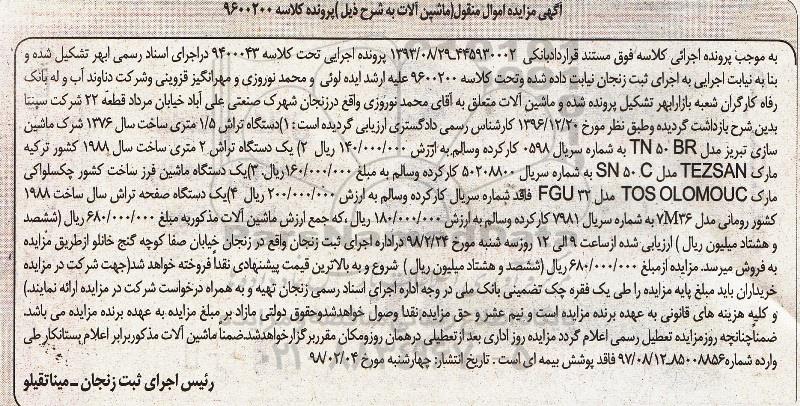 آگهی مزایده اموال منقول(ماشین آلات به شرح ذیل )پرونده کلاسه ۹۶۰۰۲۰۰
به موجب پرونده اجرائی کلاسه فوق مستند قراردادبانکی ۴۴۵۹۳۰۰۰۲-۱۳۹۳/۰۸/۲۹ پرونده اجرایی تحت کلاسه ۹۴۰۰۰۴۳ دراجرای اسناد رسمی ابهر تشکیل شده و
بنا به نیابت اجرایی به اجرای ثبت زنجان نیابت داده شده وتحت کلاسه ۹۶۰۰۲۰۰ علیه ارشد ایده لوئی و محمد نوروزی و مهرانگیز قزوینی وشرکت دناوند آب و له بانک
رفاه کارگران شعبه بازارابهر تشکیل پرونده شده و ماشین آلات متعلق به آقای محمد نوروزی واقع درزنجان شهرک صنعتی علی آباد خیابان مرداد قطعه ۲۲ شرکت سپنتا
بدین شرح بازداشت گردیده وطبق نظر مورخ ۱۳۹۶/۱۲/۲۰ کارشناس رسمی دادگستری ارزیابی گردیده است : ۱)دستگاه تراش ۱/۵ متری ساخت سال ۱۳۷۶ شرک ماشین
سازی تبریز مدل TN ۵۰ BR به شماره سریال ۰۵۹۸ کارکرده وسالم.به ارزش ۱۴۰/۰۰۰/۰۰۰ ریال ۲) یک دستگاه تراش ۲ متری ساخت سال ۱۹۸۸ کشور ترکیه
مارک TEZSAN مدل SN ۵۰ C به شماره سریال ۵۰۲۰۸۸۰۰ کارکرده وسالم به مبلغ ۱۶۰/۰۰۰/۰۰۰ریال. ۳)یک دستگاه ماشین فرز ساخت کشور چکسلواکی
مارک TOS OLOMOUC مدل FGU ۳۲ فاقد شماره سریال کارکرده وسالم به ارزش ۲۰۰/۰۰۰/۰۰۰ ریال ۴)یک دستگاه صفحه تراش ساخت سال ۱۹۸۸
کشور رومانی مدل ۷M۳۶ به شماره سریال ۷۹۸۱ کارکرده وسالم به ارزش ۱۸۰/۰۰۰/۰۰۰ ریال ،که جمع ارزش ماشین آلات مذکوربه مبلغ ۶۸۰/۰۰۰/۰۰۰ ریال (ششصد
و هشتاد میلیون ریال ) ارزیابی شده ازساعت ۹ الی ۱۲ روزسه شنبه مورخ ۹۸/۲/۲۴ دراداره اجرای ثبت زنجان واقع در زنجان خیابان صفا کوچه گنج خانلو ازطریق مزایده
به فروش میرسد. مزایده ازمبلغ ۶۸۰/۰۰۰/۰۰۰ ریال (ششصد و هشتاد میلیون ریال ) شروع و به بالاترین قیمت پیشنهادی نقداً فروخته خواهد شد(جهت شرکت در مزایده
خریداران باید مبلغ پایه مزایده را طی یک فقره چک تضمینی بانک ملی در وجه اداره اجرای اسناد رسمی زنجان تهیه و به همراه درخواست شرکت در مزایده ارائه نمایند.)
و کلیه هزینه های قانونی به عهده برنده مزایده است و نیم عشر و حق مزایده نقدا وصول خواهدشدوحقوق دولتی مازاد بر مبلغ مزایده به عهده برنده مزایده می باشد.
ضمناًچنانچه روزمزایده تعطیل رسمی اعلام گردد مزایده روز اداری بعد ازتعطیلی درهمان روزومکان مقرربرگزارخواهدشد.ضمناً ماشین آلات مذکوربرابر اعلام بستانکارطی
وارده شماره۸۵۰۰۸۸۵۶-۹۷/۰۸/۱۲ فاقد پوشش بیمه ای است . تاریخ انتشار: چهارشنبه مورخ ۹۸/۰۲/۰۴
رئیس اجرای ثبت زنجان -میناتقیلو